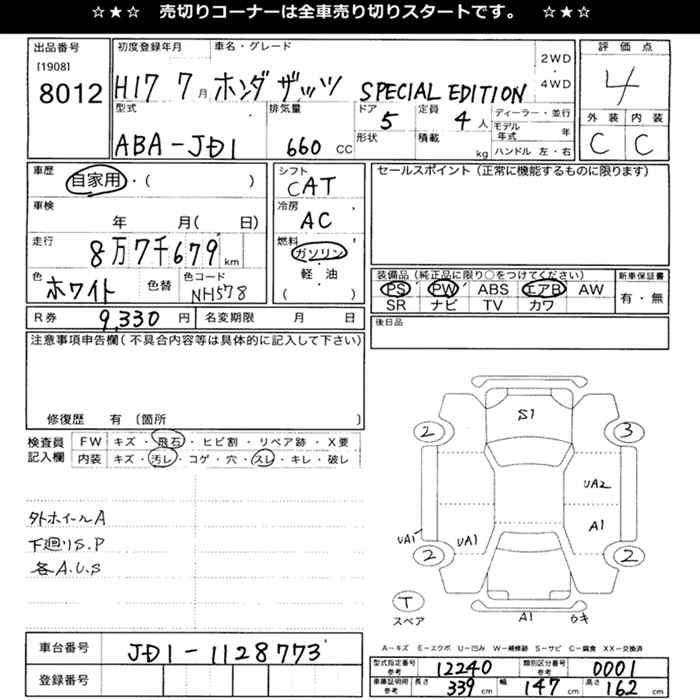 ☆★☆ 売切りコーナーは全車売り切りスタートです。 ☆★☆
出品番号
[1908]
8012
初度登録年月
車名・グレード
H17 7月 ホンダ ザッツ SPECIAL EDITION
2WD
・
4WD
評価点
4
型式
ABA-JD1
排気量
660 CC
ドア
5
形状
定員
4 人
積載
kg
ディーラー・並行
モデル年式 年
ハンドル 左・右
外装 内装
C C
車歴
自家用・( )
シフト
CAT
セールスポイント(正常に機能するものに限ります)
車検
年 月( 日)
冷房
AC
走行
8万7千679 km
燃料
ガソリン
軽・油
( )
色
ホワイト
色替
色コード
NH578
装備品(純正品に限り○をつけてください)
PS PW ABS エアB AW
SR ナビ TV カワ
新車保証書
有・無
R券 9,330 円
名変期限 月 日
後日品
注意事項申告欄(不具合内容等は具体的に記入して下さい)
修復歴 有 〔箇所 〕
検査員記入欄
FW キズ・飛石・ヒビ割・リペア跡・X要
内装 キズ・汚レ・コゲ・穴・スレ・キレ・破レ
外ホイールA
下廻りS.P
各A.U.S
S1
2
3
UA2
A1
UA1
UA1
2
2
T
スペア
A1
ウキ
A-キズ E-エクボ U-凹み W-補修跡 S-サビ C-腐食 XX-交換済
車台番号 JD1-1128773
登録番号
型式指定番号 参考 12240
類別区分番号 参考 0001
車庫証明用 参考 長さ 339 cm 幅 147 cm 高さ 162 cm